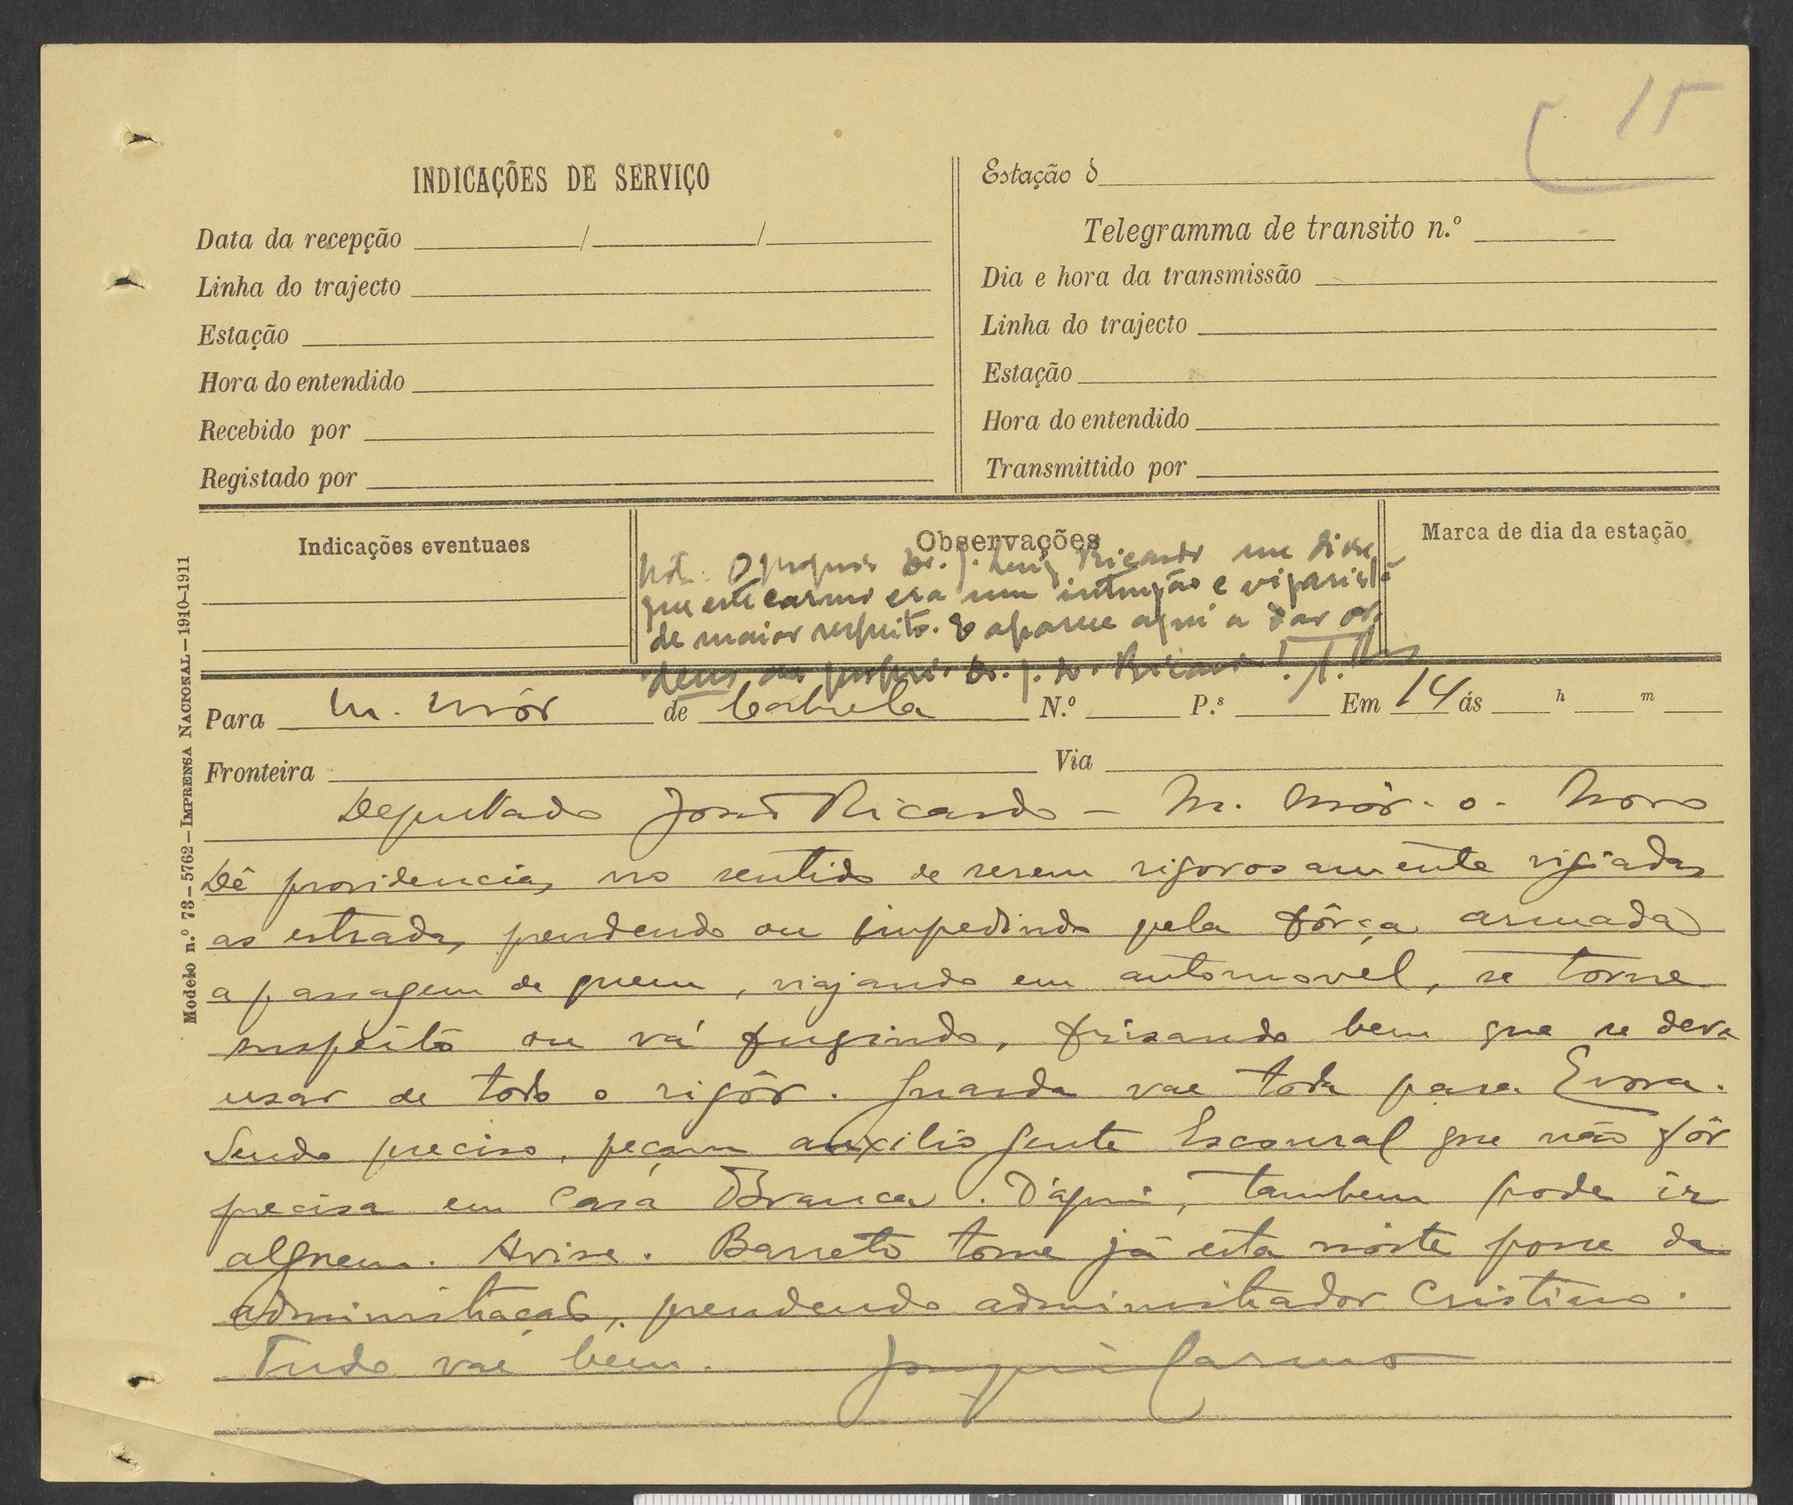 15
INDICAÇÕES DE SERVIÇO
Data da recepção / /
Linha do trajecto
Estação
Hora do entendido
Recebido por
Registado por
Estação d
Telegramma de transito n.º
Dia e hora da transmissão
Linha do trajecto
Estação
Hora do entendido
Transmittido por
Indicações eventuaes
Observações
Marca de dia da estação
O proprio Dr. J. Luiz Ricardo me disse
que este carmo era um intrujão e vigarista
de maior respeito. E aparece aqui a dar or-
dens ao proprio Dr. J. L. Ricardo!
Para M. Mór de Cabrela N.º P.s Em 14 ás h m
Fronteira Via
Deputado José Ricardo - M. Mór-o-Novo
Dê providencias no sentido de serem rigorosamente vigiadas
as estradas, prendendo ou impedindo pela fôrça armada
a passagem de quem, viajando em automovel, se torne
suspeito ou vá fugindo, frisando bem que se deva
usar de todo o rigôr. Guarda vae toda para Evora.
Sendo preciso, peçam auxilio gente Escoural que não fôr
precisa em Casa Branca. D'aqui, tambem pode ir
alguem. Avise. Barreto tome já esta noite posse da
administração, prendendo administrador Cristino.
Tudo vae bem. Joaquim Carmo
Modelo n.º 73-5762-IMPRENSA NACIONAL-1910-1911